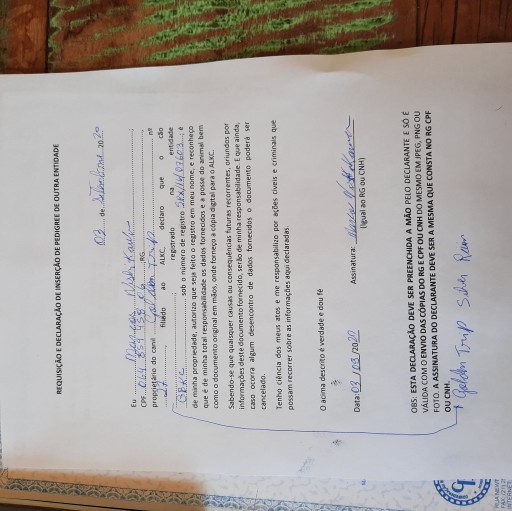 REQUISIÇÃO E DECLARAÇÃO DE INSERÇÃO DE PEDIGREE DE OUTRA ENTIDADE
03 de Setembro 2020
Eu
CPF RG nº
proprietário do canil Golden Trup
filiado ao ALKC, declaro que o cão
registrado na entidade
sob o número de registro é
de minha propriedade, autorizo que seja feito o registro em meu nome, e reconheço
que é de minha total responsabilidade os dados fornecidos e a posse do animal bem
como o documento original em mãos, onde forneço a cópia digital para o ALKC.
Sabendo-se que quaisquer causas ou consequências futuras recorrentes, oriundos por
informações deste documento fornecido, serão de minha responsabilidade. E que ainda,
caso ocorra algum desencontro de dados fornecidos o documento poderá ser
cancelado.
Tenho ciência dos meus atos e me responsabilizo por ações cíveis e criminais que
possam recorrer sobre as informações aqui declaradas.
O acima descrito é verdade e dou fé
Data: 03/09/2020 Assinatura:
(Igual ao RG ou CNH)
OBS: ESTA DECLARAÇÃO DEVE SER PREENCHIDA A MÃO PELO DECLARANTE E SÓ É
VÁLIDA COM O ENVIO DAS CÓPIAS DO RG E CPF OU CNH DO MESMO EM JPEG, PNG OU
FOTO. A ASSINATURA DO DECLARANTE DEVE SER A MESMA QUE CONSTA NO RG CPF
OU CNH.
Golden Trup